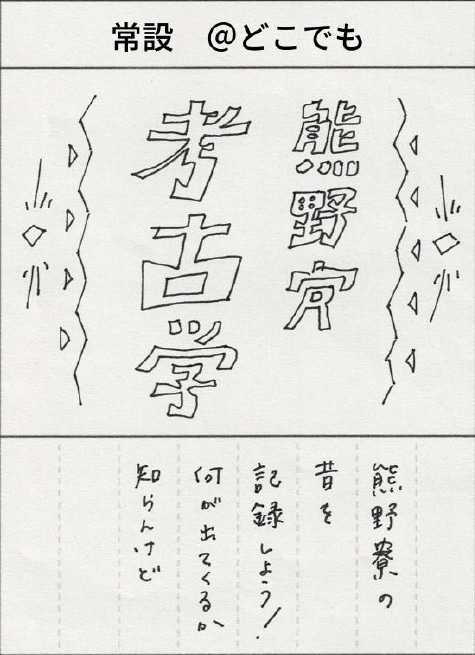 常設 @どこでも
熊野寮
考古学
熊野寮の
昔を
記録しよう!
何が出てくるか
知らんけど